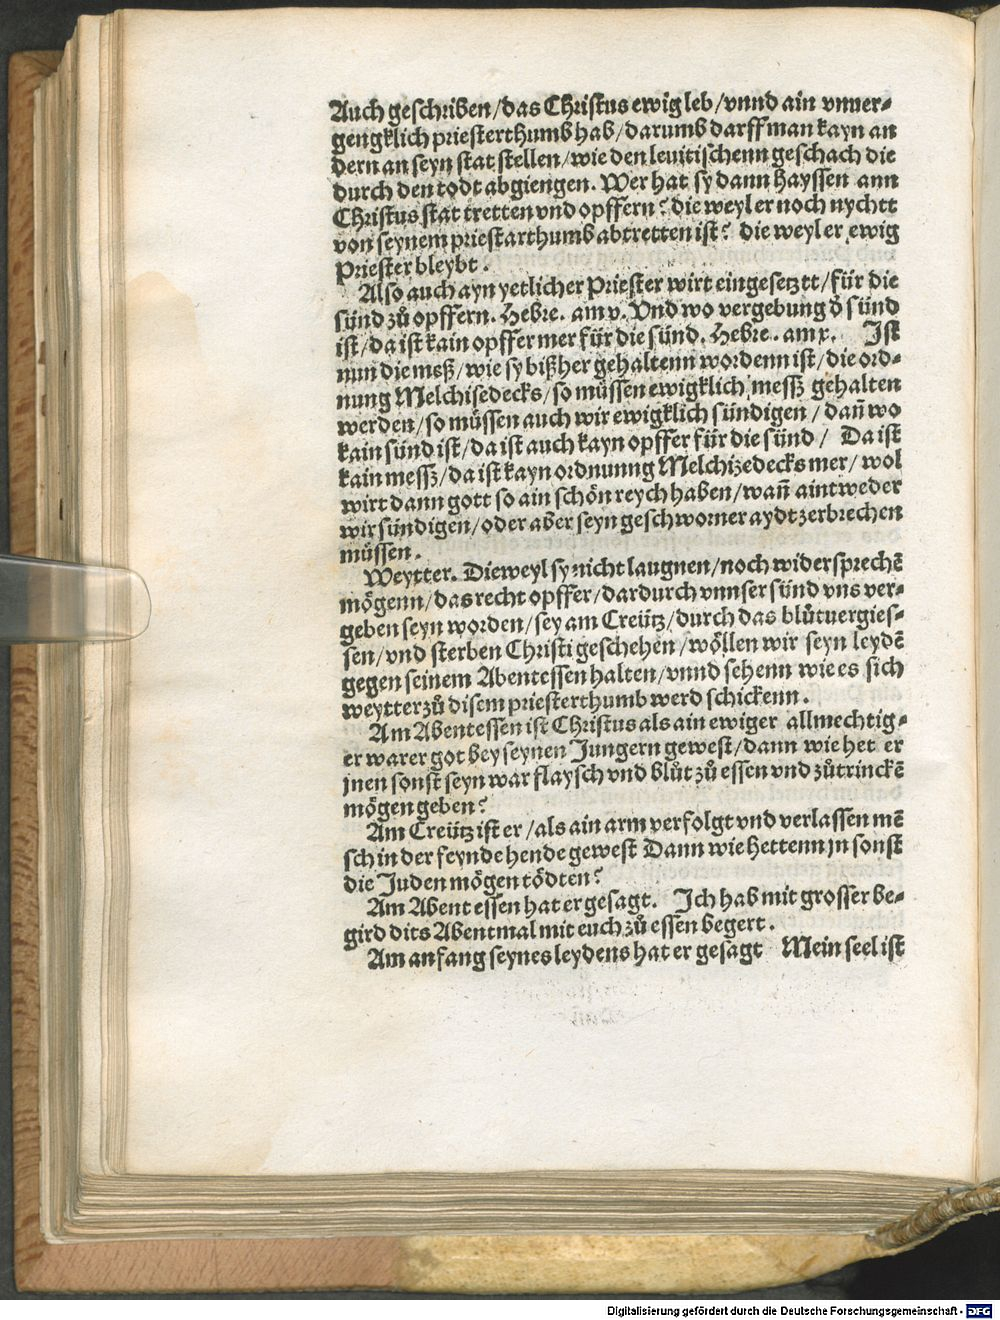 Auch geschriben/das Christus ewig leb/vnnd ain vnuer-
gengklich priesterthumb hab/darumb darff man kayn an
dern an seyn stat stellen/wie den leuitischenn geschach die
durch den todt abgiengen. Wer hat sy dann hayssen ann
Christus stat tretten vnd opffern? die weyl er noch nychtt
von seynem priestarthumb abtretten ist? die weyl er ewig
Priester bleybt.
Also auch ayn yetlicher Priester wirt eingesetztt/für die
sünd zů opffern. Hebre. am v. Vnd wo vergebung ð sünd
ist/da ist kain opffer mer für die sünd. Hebre.. am x. Ist
nun die meß/wie sy bißher gehaltenn wordenn ist/die ord-
nung Melchisedecks/so müssen ewigklich messz gehalten
werden/so müssen auch wir ewigklich sündigen/dañ wo
kain sünd ist/da ist auch kayn opffer für die sünd/ Da ist
kain messz/da ist kayn ordnunng Melchizedecks mer/wol
wirt dann gott so ain schön reych haben/wañ aintweder
wir sündigen/oder aber seyn geschworner aydt zerbrechen
müssen.
Weytter. Dieweyl sy nicht laugnen/noch widersprechē
mögenn/das recht opffer/dardurch vnnser sünd vns ver-
geben seyn worden/sey am Creütz/durch das blůtuergies-
sen/vnd sterben Christi geschehen/wöllen wir seyn leydē
gegen seinem Abentessen halten/vnnd sehenn wie es sich
weytter zů disem priesterthumb werd schickenn.
Am Abentessen ist Christus als ain ewiger allmechtig-
er warer got bey seynen Jungern gewest/dann wie het er
jnen sonst seyn war flaysch vnd blůt zů essen vnd zůtrinckē
mögen geben?
Am Creütz ist er/als ain arm verfolgt vnd verlassen mē
sch in der feynde hende gewest Dann wie hettenn jn sonst
die Juden mögen tödten?
Am Abent essen hat er gesagt. Ich hab mit grosser be-
gird dits Abentmal mit euch zů essen begert.
Am anfang seynes leydens hat er gesagt Mein seel ist
Digitalisierung gefördert durch die Deutsche Forschungsgemeinschaft - DFG